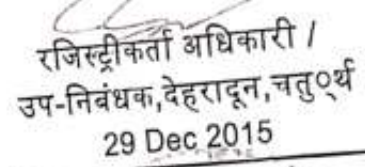 रजिस्ट्रीकर्ता अधिकारी /
उप-निबंधक,देहरादून,चतु०र्थ
29 Dec 2015